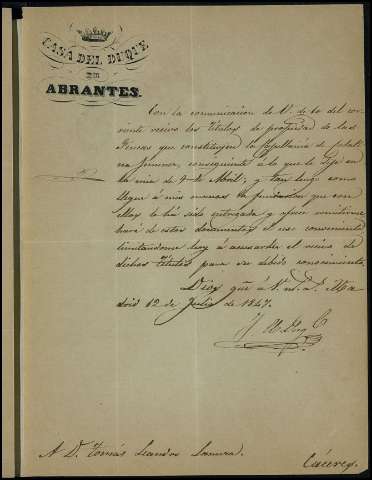 CASA DEL DUQUE
DE
ABRANTES.
Con la comunicacion de V. de 6 del cor
riente recivo los Titulos de propiedad de las
Fincas que constituyen la Capellania de
consiguiente á lo que le dije en
la mia de 7 de Abril; y tan luego como
llegue á mis manos la fundacion que con
ha sido entregada y ofrece remitirme
hará de estos documentos
limitandome hoy á acusarle el recivo de
dichos Titulos para su debido conocimiento.
Dios gue á V. ms. as. Ma
drid 12 de Julio de 1847.
A D. Tomás Leandro
Cáceres.